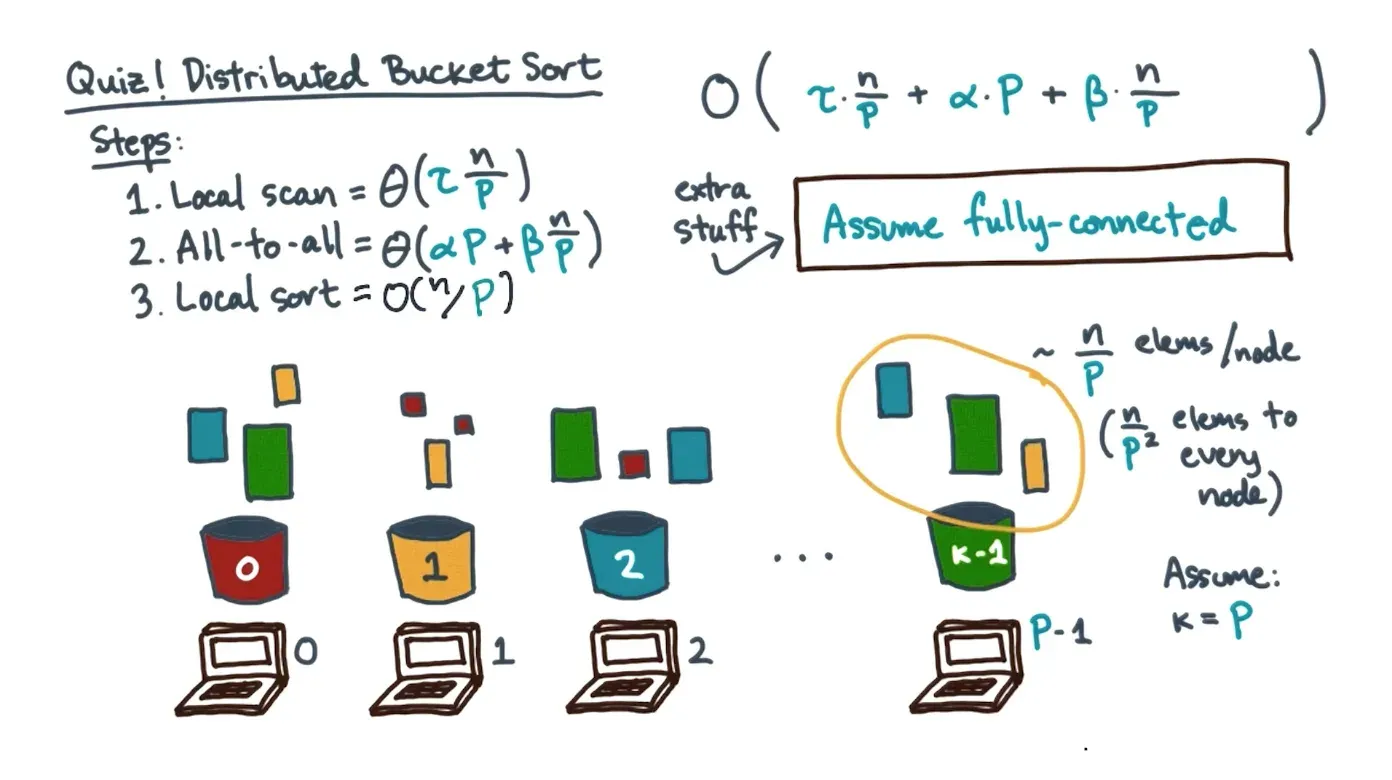 Quiz! Distributed Bucket Sort
O( τ·n/P + α·P + β·n/P )
Steps:
1. Local scan = Θ(τ n/P)
2. All-to-all = Θ(αP + β n/P)
3. Local sort = O(n/P)
extra
stuff
Assume fully-connected
~ n/P elems/node
(n/P² elems to
every
node)
0
1
2
...
K-1
Assume:
K = P
0
1
2
P-1